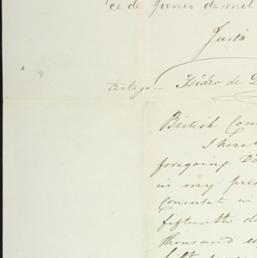 ce de Junio de mil
Justo
testigo Isidro de
British Con
I here
foregoing D
in my pres
Consulate in
fifteenth d
thousand e
fift